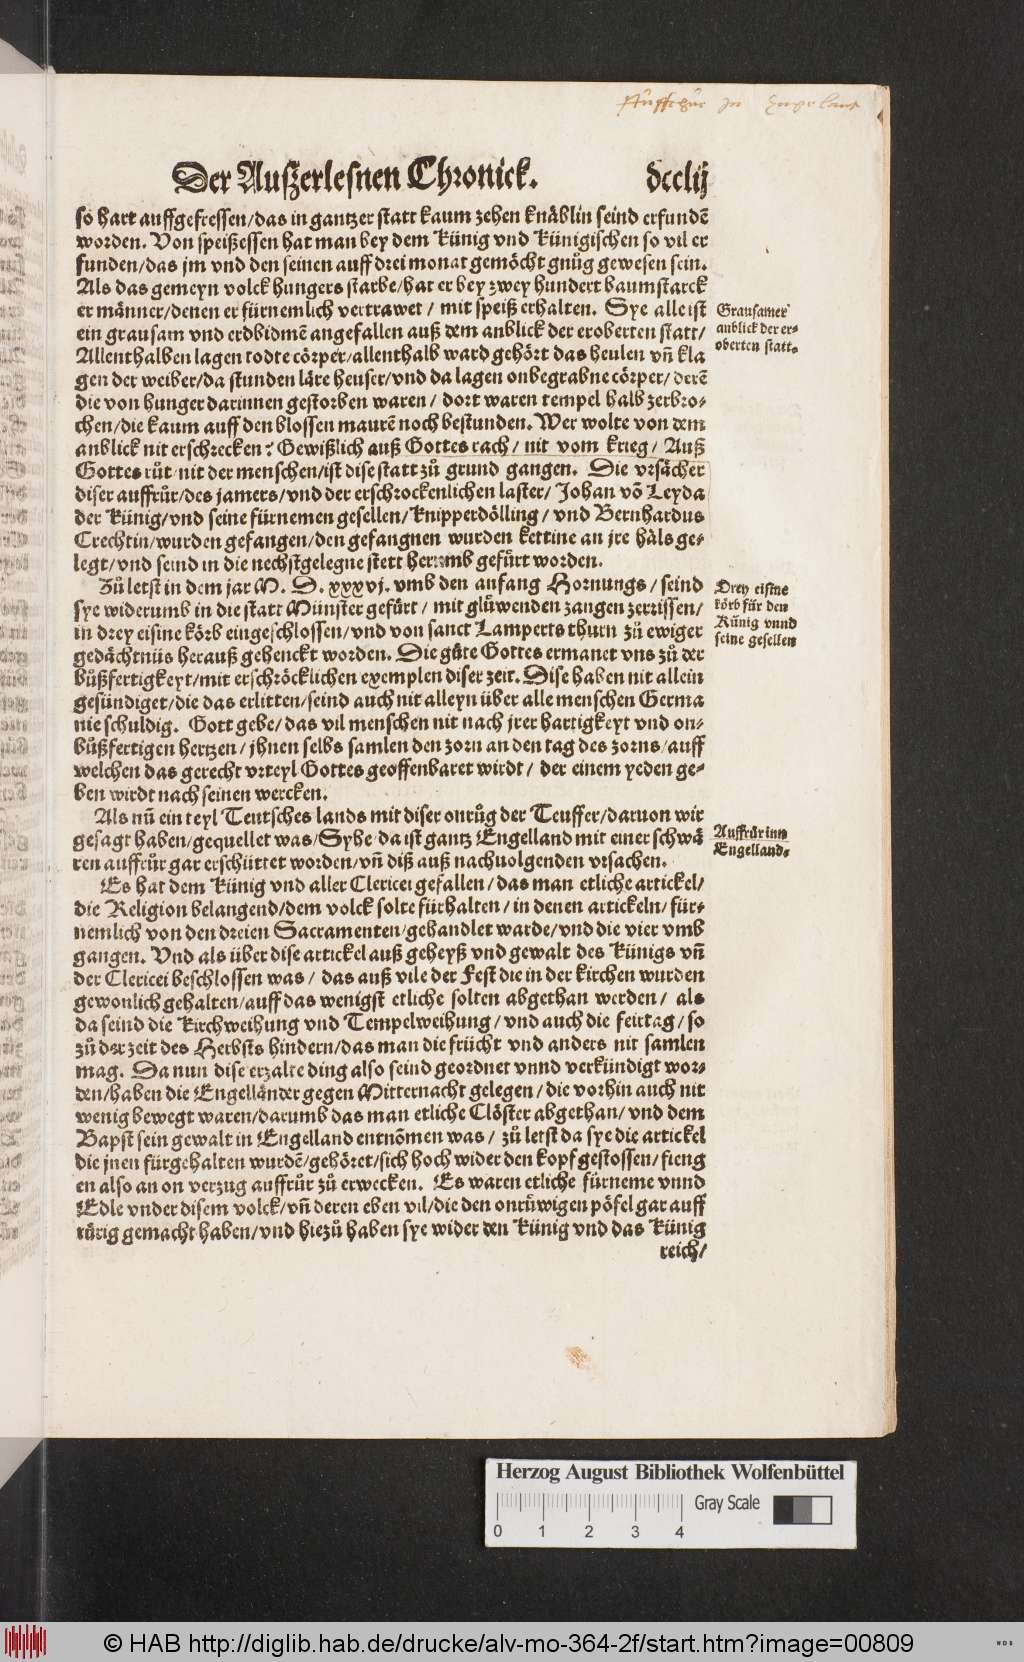 Auffrhur In Engelant
Der Außerlesnen Chronick. dcclij
so hart auffgefressen/das in gantzer statt kaum zehen knäblin seind erfundē
worden. Von speißessen hat man bey dem Künig vnd Künigischen so vil er
funden/das jm vnd den seinen auff drei monat gemöcht gnůg gewesen sein.
Als das gemeyn volck hungers starbe/hat er bey zwey hundert baumstarck
er männer/denen er fürnemlich vertrawet/ mit speiß erhalten. Sye alle ist
ein grausam vnd erdbidmē angefallen auß dem anblick der eroberten statt/
Allenthalben lagen todte cörper/allenthalb ward gehört das heulen vñ kla
gen der weiber/da stunden läre heuser/vnd da lagen onbegrabne cörper/ derē
die von hunger darinnen gestorben waren/ dort waren tempel halb zerbro-
chen/die kaum auff den blossen maurē noch bestunden. Wer wolte von dem
anblick nit erschrecken? Gewißlich auß Gottes rach/ nit vom krieg/ Auß
Gottes růt nit der menschen/ist dise statt zů grund gangen. Die vrsächer
diser auffrůr/des jamers/vnd der erschrockenlichen laster/ Johan vō Leyda
der Künig/vnd seine fürnemen gesellen/Knipperdölling/ vnd Bernhardus
Crechtin/wurden gefangen/den gefangnen wurden kettine an jre häls ge-
legt/vnd seind in die nechstgelegne stett herumb gefůrt worden.
Zů letst in dem jar M. D. xxxvj. vmb den anfang Hornungs/ seind
sye widerumb in die statt Münster gefůrt/ mit glůwenden zangen zerrissen/
in drey eisine körb eingeschlossen/vnd von sanct Lamperts thurn zů ewiger
gedächtnüs herauß gehenckt worden. Die gůte Gottes ermanet vns zů der
bůßfertigkeyt/mit erschröcklichen exemplen diser zeit. Dise haben nit allein
gesündiget/die das erlitten/seind auch nit alleyn über alle menschen Germa
nie schuldig. Gott gebe/das vil menschen nit nach jrer hartigkeyt vnd on-
bůßfertigen hertzen/ jhnen selbs samlen den zorn an den tag des zorns/auff
welchen das gerecht vrteyl Gottes geoffenbaret wirdt/ der einem yeden ge-
ben wirdt nach seinen wercken.
Als nũ ein teyl Teutsches lands mit diser onrůg der Teuffer/daruon wir
gesagt haben/gequellet was/Syhe da ist gantz Engelland mit einer schwä
ren auffrůr gar erschüttet worden/vñ diß auß nachuolgenden vrsachen.
Es hat dem Künig vnd aller Clericei gefallen/das man etliche artickel/
die Religion belangend/dem volck solte fürhalten/in denen artickeln/für-
nemlich von den dreien Sacramenten/gehandlet warde/vnd die vier vmb
gangen. Vnd als über dise artickel auß geheyß vnd gewalt des Künigs vñ
der Clericei beschlossen was/ das auß vile der Fest die in der kirchen wurden
gewonlich gehalten/auff das wenigst etliche solten abgethan werden/ als
da seind die Kirchweihung vnd Tempelweihung/vnd auch die feirtag/so
zů der zeit des Herbsts hindern/das man die frücht vnd anders nit samlen
mag. Da nun dise erzalte ding also seind geordnet vnnd verkündigt wor-
den/haben die Engelländer gegen Mitternacht gelegen/die vorhin auch nit
wenig bewegt waren/darumb das man etliche Clöster abgethan/vnd dem
Bapst sein gewalt in Engelland entnōmen was/ zů letst da sye die artickel
die jnen fürgehalten wurdē/gehöret/sich hoch wider den kopf gestossen/fieng
en also an on verzug auffrůr zů erwecken. Es waren etliche fürneme vnnd
Edle vnder disem volck/vñ deren eben vil/die den onrůwigen pöfel gar auff
rürig gemacht haben/vnd hiezů haben sye wider den Künig vnd das Künig
reich/
Grausamer
anblick der er-
oberten statt.
Drey eisine
körb für den
Künig vnnd
seine gesellen
Auffrůr inn
Engelland.
Herzog August Bibliothek Wolfenbüttel
Gray Scale
0 1 2 3 4
© HAB http://diglib.hab.de/drucke/alv-mo-364-2f/start.htm?image=00809
HAB